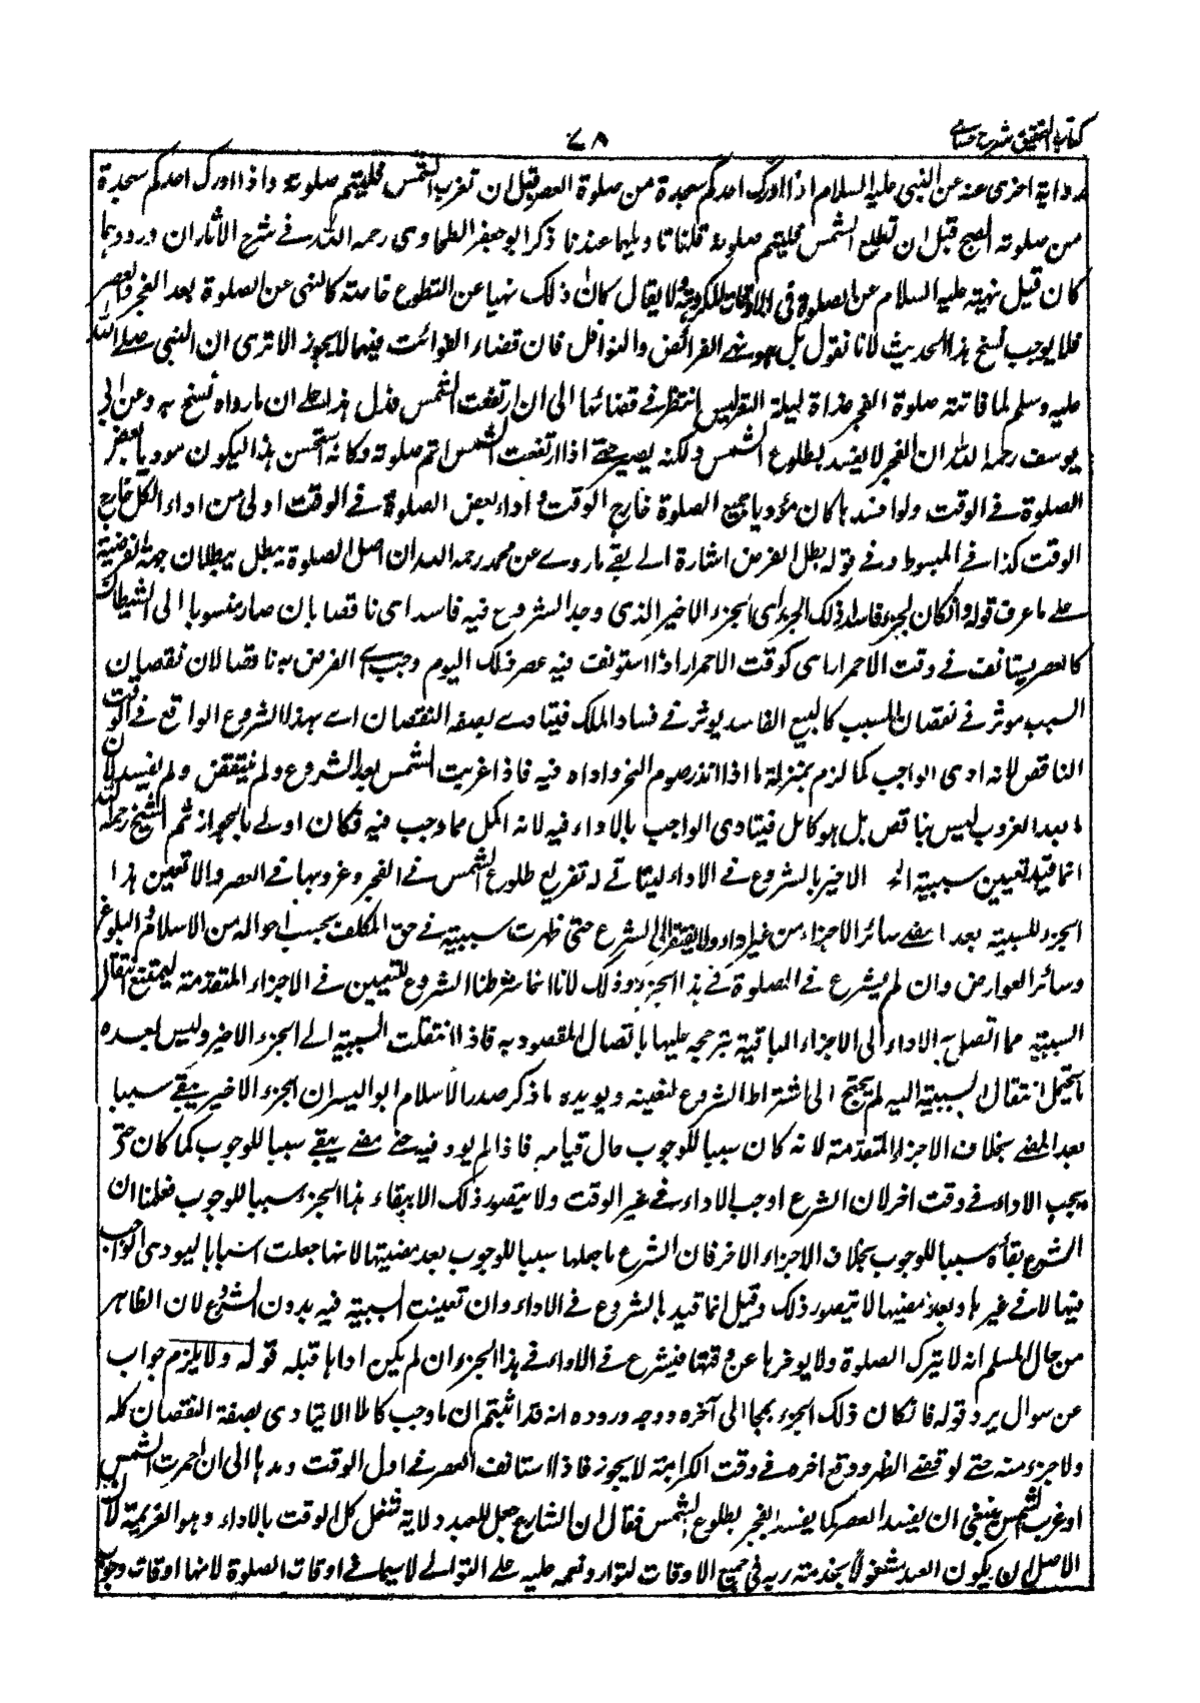 كتاب التحقيق شرح حسامي
٧٨
رواية اخرى عنه عن النبي عليه السلام اذا ادرك احدكم سجدة من صلوة العصر قبل ان تغرب الشمس فليتم صلوته واذا ادرك احدكم سجدة
من صلوته الصبح قبل ان تطلع الشمس فليتم صلوته قلنا تاويلها عندنا ذكر ابو جعفر الطحاوى رحمه الله فے شرح الاثار ان ورودها
كان قبل نهيته عليه السلام عن الصلوة فى الاوقات المكروهة ولا يقال كان ذلك نهيا عن التطوع خاصته كالنهى عن الصلوة بعد الفجر والعصر
فلا يوجب نسخ هذا الحديث لانا نقول بل هو نهے الفرائض والنوافل فان قضاء الفوائت فيهما لا يجوز الا ترى ان النبى صلے الله
عليه وسلم لما فاتته صلوة الفجر غداة ليلة التعريس انتظر فے قضائها الى ان ارتفعت الشمس فدل هذا علے ان مارواه نسخ به وعن ابى
يوسف رحمه الله ان الفجر لا يفسد بطلوع الشمس ولكنه يصبر حتے اذا ارتفعت الشمس اتم صلوته وكانه استحسن هذا ليكون موديا بعض
الصلوة فے الوقت ولو افسدها كان مؤديا جميع الصلوة خارج الوقت واداء بعض الصلوة فے الوقت اولى من اداء الكل خارج
الوقت كذا فے المبسوط وفے قوله بطل الفرض اشارة الے بقے ماروے عن محمد رحمه الله ان اصل الصلوة يبطل ببطلان جهة الفرضية
علے ماعرف قوله واذا كان الجزء فاسدا ذلك الجزء اى الجزء الاخير الذى وجد الشروع فيه فاسدا اى ناقصا بان صار منسوبا الى الشيطان
كالعصر يستانف فے وقت الاحمرار اى كوقت الاحمرار اذا استونف فيه عصر ذلك اليوم وجب الفرض به ناقصا لان نقصان
السبب موثر فے نقصان المسبب كالبيع الفاسد يوثر فے فساد الملك فيتادے بصفه النقصان اے بهذا الشروع الواقع فے الوقت
الناقص لانه ادى الواجب كما لزم بمنزلة ما اذا انذر صوم النحر واداه فيه فاذا غربت الشمس بعد الشروع ولم ينتقض ولم يفسد لان
ما بعد الغروب ليس بناقص بل هو كامل فيتادى الواجب بالاداء فيه لانه اكمل مما وجب فيه فكان اولے بالجواز ثم الشيخ رحمه الله
انما قيد تعيين سببية الجزء الاخير بالشروع فے الاداء ليتاتے له تفريع طلوع الشمس فے الفجر وغروبها فے العصر والا تعين هذا
الجزء للسببية بعد امضے سائر الاجزاء من غير اداء ولا يفتقر الى الشروع حتى ظهرت سببيته فے حق المكلف بحسب احواله من الاسلام والبلوغ
وسائر العوارض وان لم يشرع فے الصلوة فے هذا الجزء وذلك لانا انما شرطنا الشروع للتعيين فے الاجزاء المتقدمة ليمتنع انتقال
السببية مما اتصل به الاداء الى الاجزاء الباقية بترجحه عليها باتصال المقصود به فاذا انتقلت السببية الے الجزء الاخير وليس بعده
ما يحتمل انتقال السببية اليه لم يحتج الى اشتراط الشروع لتعينه ويويده ما ذكر صدر الاسلام ابو اليسر ان الجزء الاخير يبقے سببا
بعد المضے بخلاف الاجزاء المتقدمة لانه كان سببا للوجوب حال قيامه فاذا لم يود فيه حتے مضے يبقے سببا للوجوب كما كان حتى
يجب الاداء فے وقت اخر لان الشرع اوجب الاداء فے غير الوقت ولا يتصور ذلك الا ببقاء هذا الجزء سببا للوجوب فعلمنا ان
الشرع بقاه سببا للوجوب بخلاف الاجزاء الاخر فان الشرع ما جعلها سببا للوجوب بعد مضيتها لانها جعلت اسبابا ليودى الواجب
فيها لا فے غيرها وبعد مضيها لا يتصور ذلك وقيل انما قيد بالشروع فے الاداء وان تعينت السببية فيه بدون الشروع لان الظاهر
من حال المسلم انه لا يترك الصلوة ولا يوخرها عن وقتها فيشرع فے الاداء فے هذا الجزء ان لم يكن اداها قبله قوله ولا يلزم جواب
عن سوال يرد قوله فان كان ذلك الجزء صحيحا الى آخره ووجه وروده انه قد اثبتم ان ماوجب كاملا لا يتادى بصفة النقصان كله
ولا جزء منه حتے لو قضے الظهر ووقع اخره فے وقت الكراهة لا يجوز فاذا استانف العصر فے اول الوقت ومدها الى ان احمرت الشمس
او غربت الشمس ينبغى ان يفسد العصر كما يفسد الفجر بطلوع الشمس فقال ان الشارع جعل للعبد ولاية شغل كل الوقت بالاداء وهو العزيمة لان
الاصل ان يكون العبد مشغولا بخدمته ربه فى جميع الاوقات لتوارد نعمه عليه علے التوالے لاسيما فے اوقات الصلوة لانها اوقات وجوب